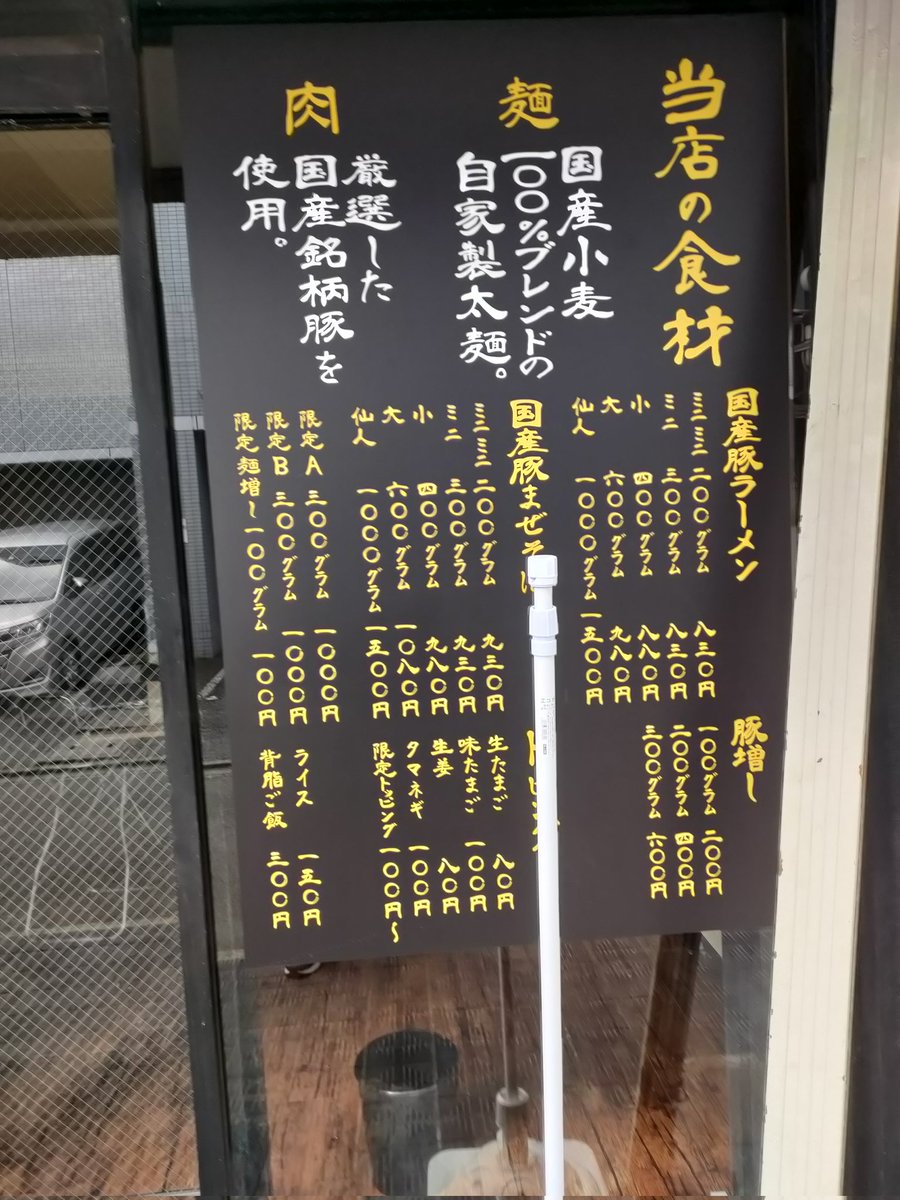 当店の食材
麺
国産小麦
一〇〇%ブレンドの
自家製太麺。
肉
厳選した
国産銘柄豚を
使用。
国産豚ラーメン
ミニミニ 二〇〇グラム 八三〇円
ミニ 三〇〇グラム 八三〇円
小 四〇〇グラム 八八〇円
大 六〇〇グラム 九八〇円
仙人 一〇〇〇グラム 一五〇〇円
国産豚まぜそ
ミニミニ 二〇〇グラム 九三〇円
ミニ 三〇〇グラム 九三〇円
小 四〇〇グラム 九八〇円
大 六〇〇グラム 一〇八〇円
仙人 一〇〇〇グラム 一五〇〇円
限定A 三〇〇グラム 一〇〇〇円
限定B 三〇〇グラム 一〇〇〇円
限定麺増し 一〇〇グラム 一〇〇円
豚増し
一〇〇グラム 二〇〇円
二〇〇グラム 四〇〇円
三〇〇グラム 六〇〇円
生たまご 八〇円
味たまご 一〇〇円
生姜 八〇円
タマネギ 一〇〇円
限定トッピング 一〇〇円〜
ライス 一五〇円
背脂ご飯 三〇〇円